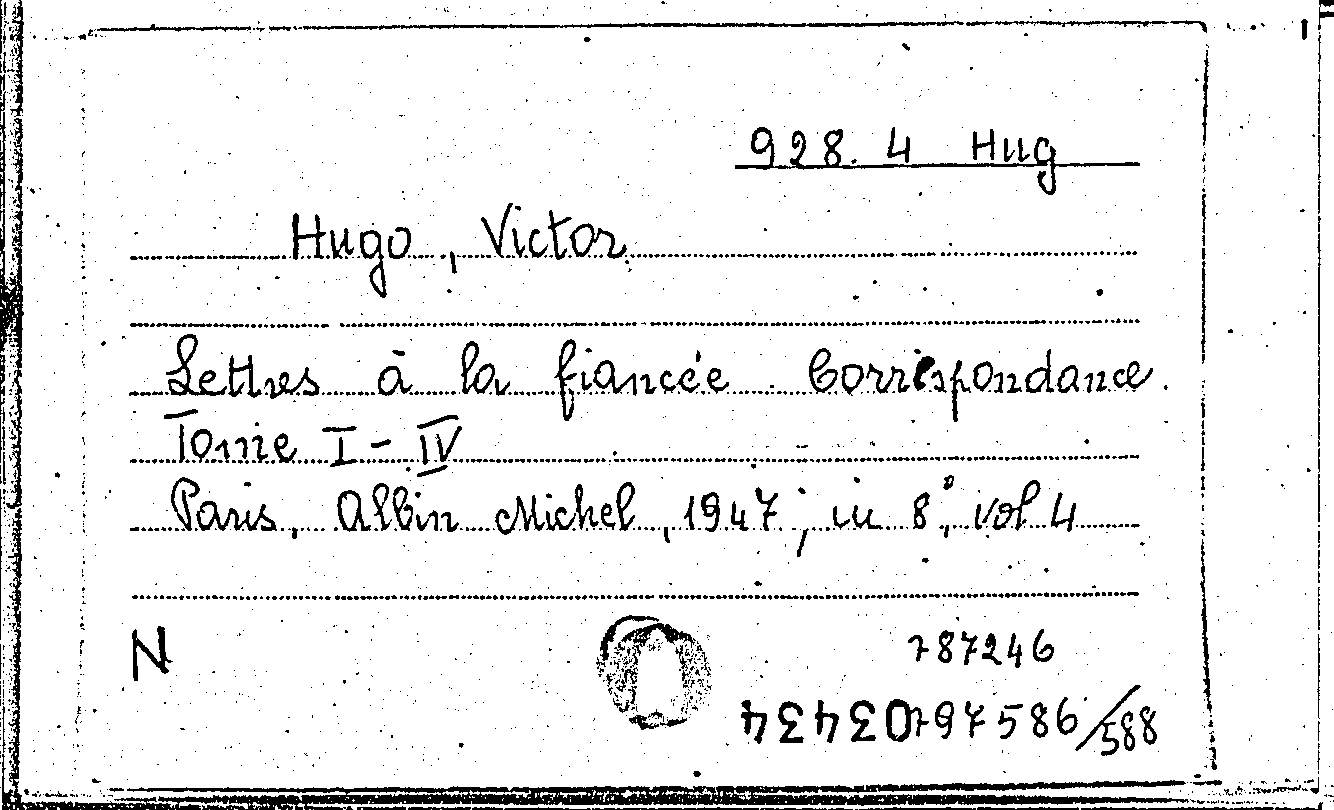 928.4 Hug
Hugo, Victor
Lettres à la fiancée. Correspondance.
Tome I-IV
Paris, Albin Michel, 1947; in 8°, vol 4
N 787246
797586/588